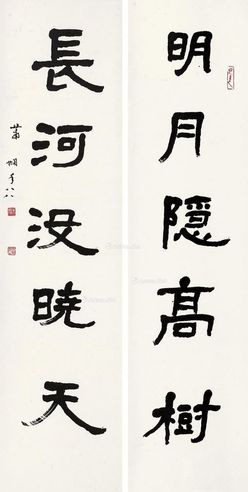 明月隱高樹
長河没曉天